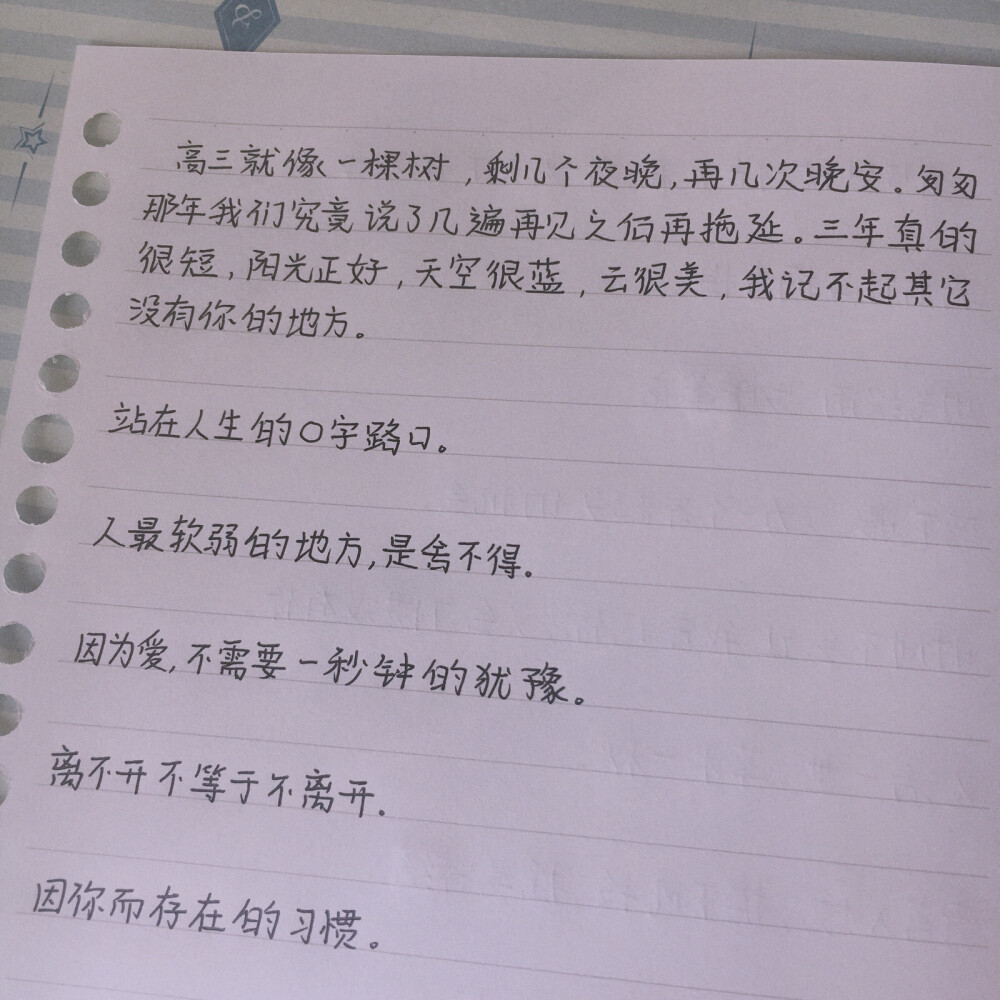 高三就像一棵树,剩几个夜晚,再几次晚安。匆匆
那年我们究竟说了几遍再见之后再拖延。三年真的
很短,阳光正好,天空很蓝,云很美,我记不起其它
没有你的地方。
站在人生的〇字路口。
人最软弱的地方,是舍不得.
因为爱,不需要一秒钟的犹豫。
离不开不等于不离开.
因你而存在的习惯。